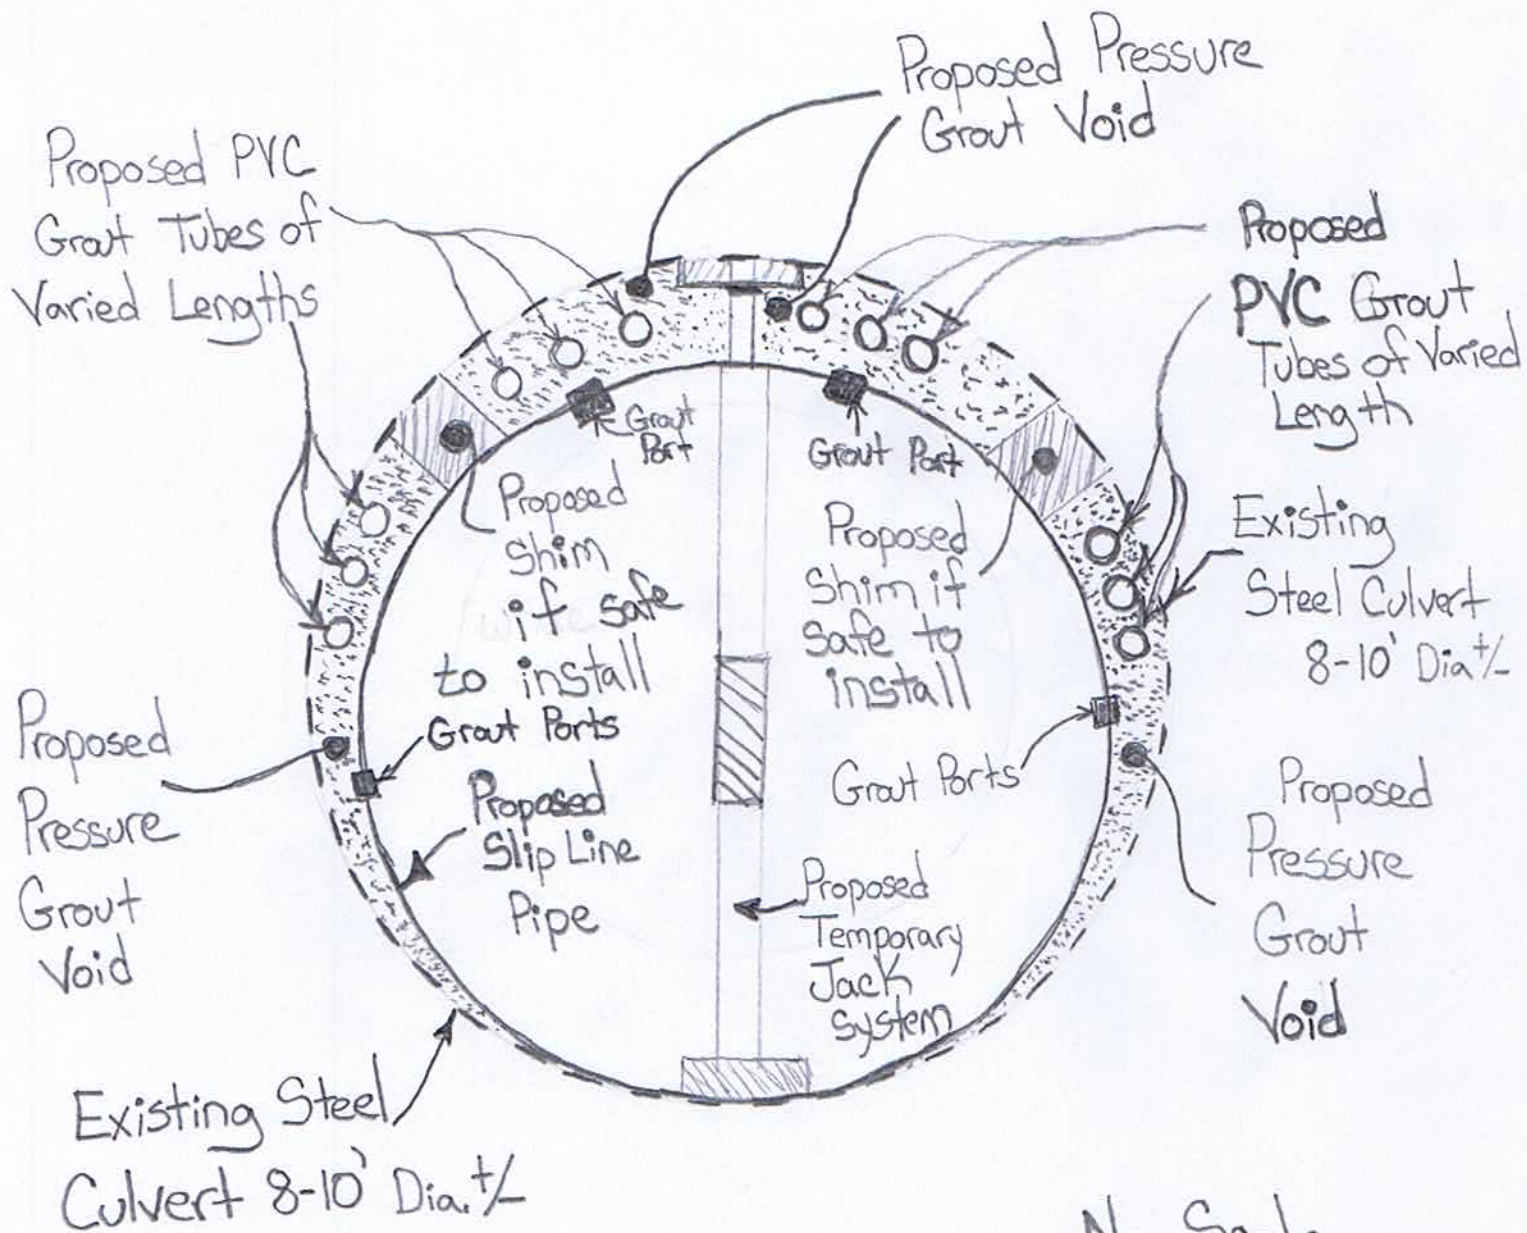 Proposed Pressure
Grout Void
Proposed PVC
Grout Tubes of
Varied Lengths
Proposed
PVC Grout
Tubes of Varied
Length
Grout
Port
Grout Port
Proposed
Shim
if safe
to install
Proposed
Shim if
safe to
install
Existing
Steel Culvert
8-10' Dia +/-
Grout Ports
Grout Ports
Proposed
Pressure
Grout
Void
Proposed
Slip Line
Pipe
Proposed
Temporary
Jack
System
Proposed
Pressure
Grout
Void
Existing Steel
Culvert 8-10' Dia. +/-